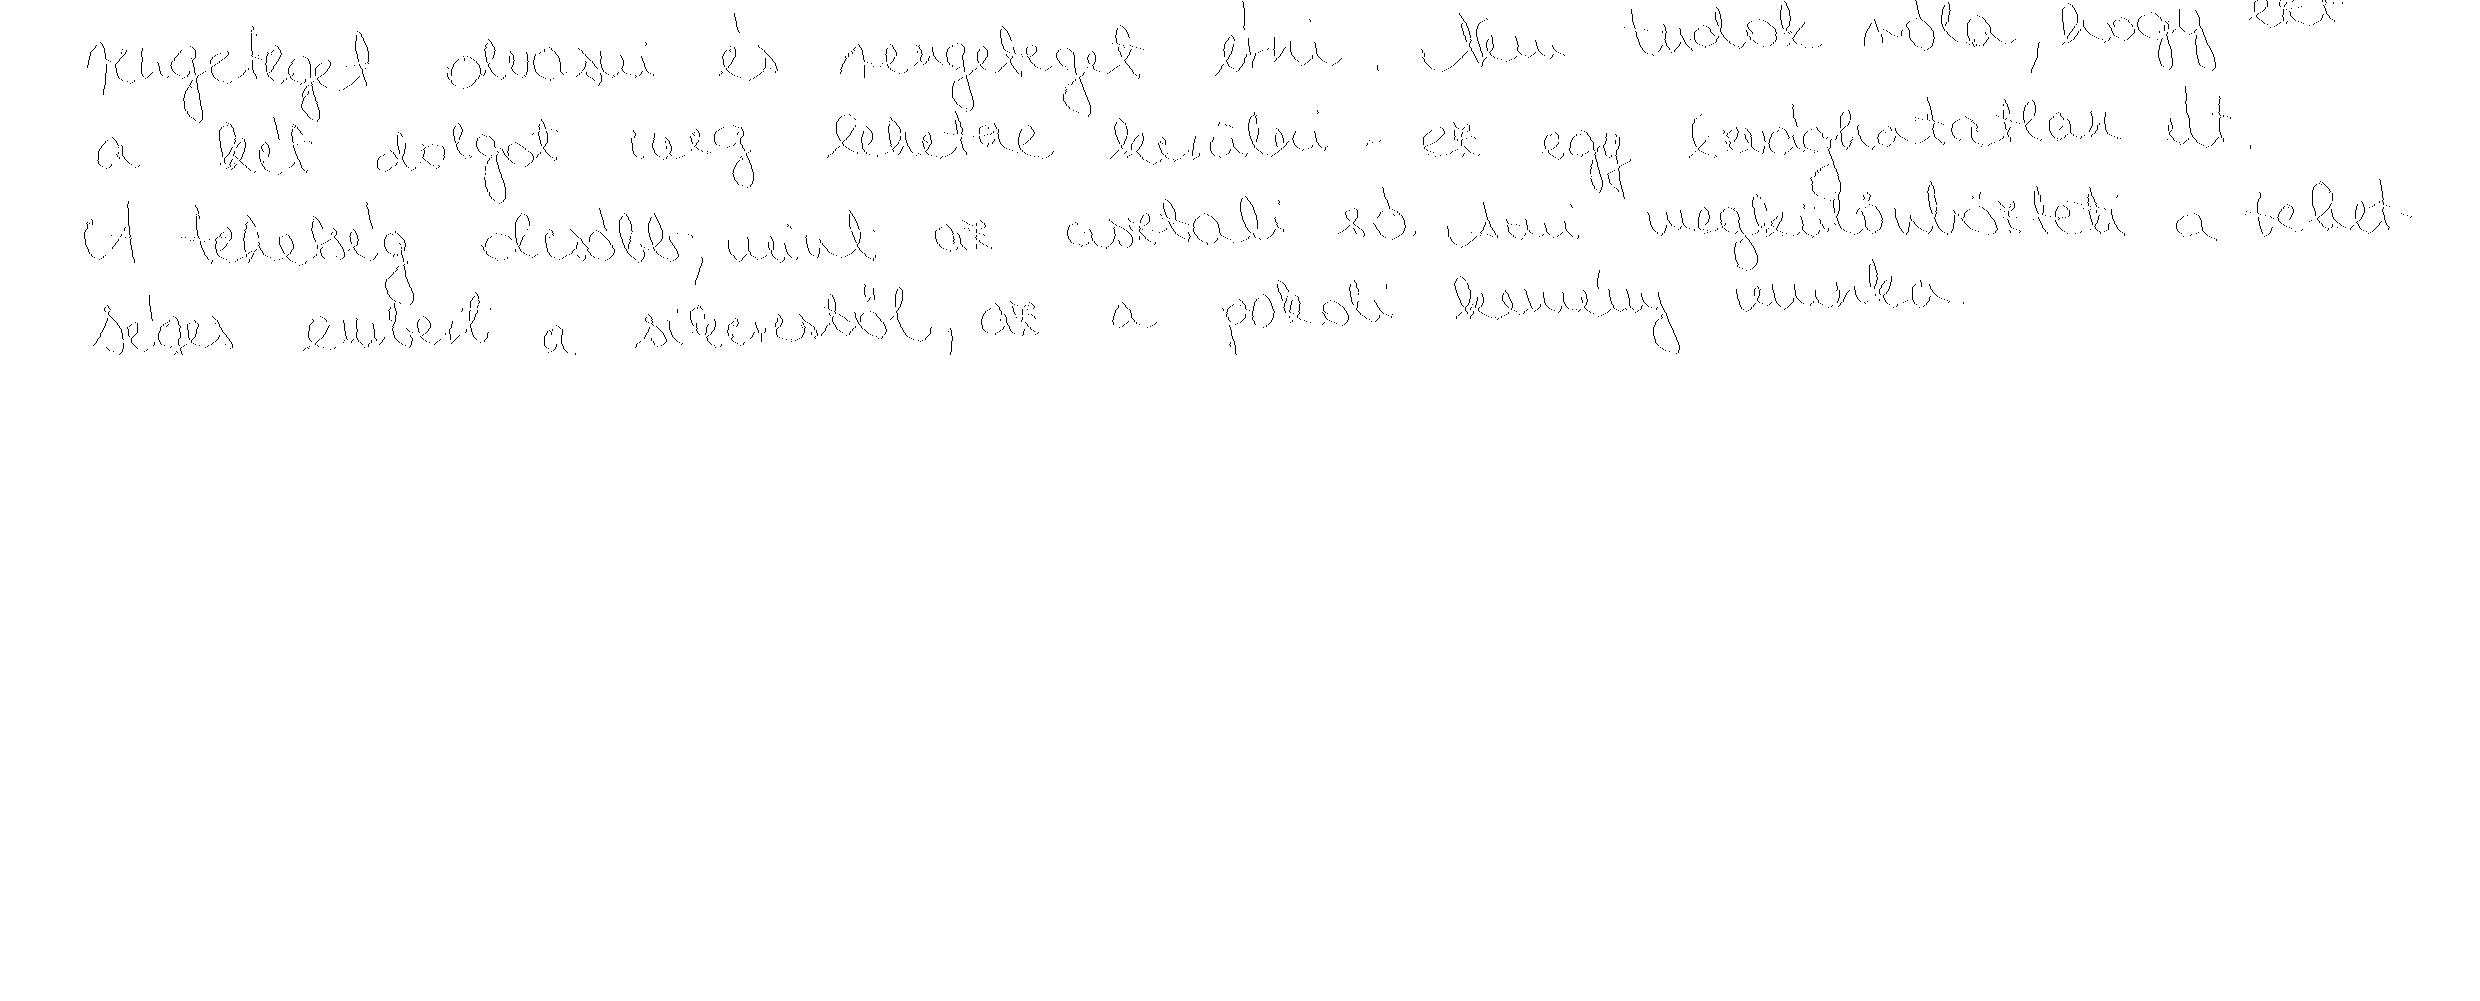 rengeteget olvasni és rengeteget írni. Nem tudok róla, hogy ezt
a két dolgot meg lehetne kerülni - ez egy levághatatlan út.
A tehetség olcsóbb, mint az asztali só. Ami megkülönbözteti a tehet-
séges embert a sikerestől, az a pokoli kemény munka.